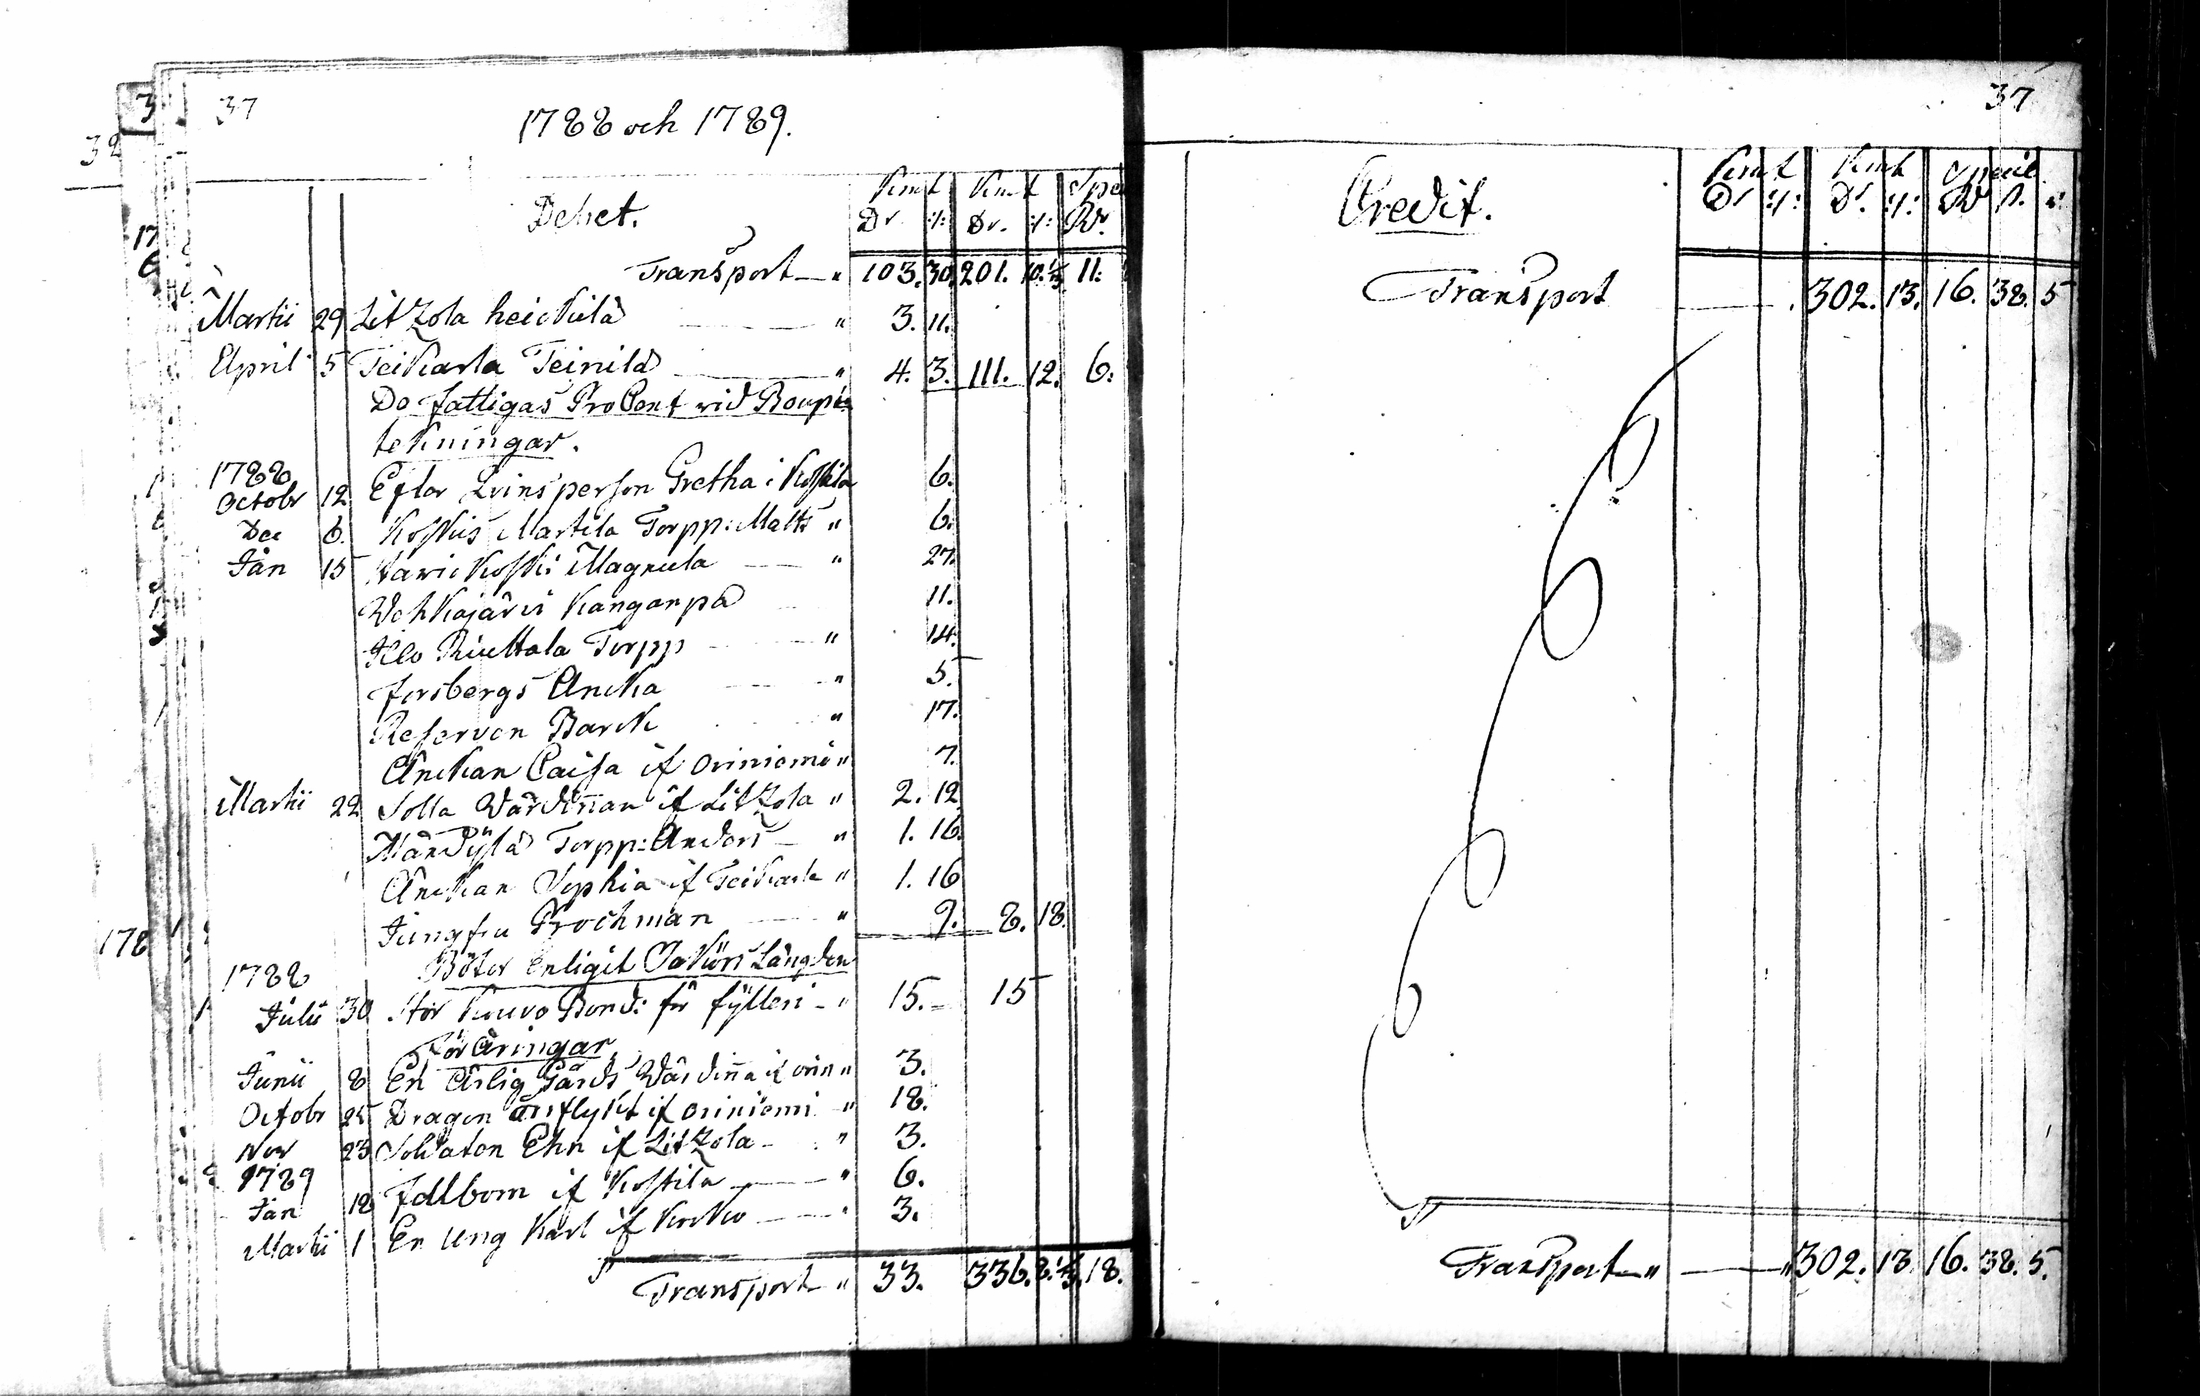 37
1788 och 1789.
Debet.
Kmt Kmt Spe
Dr :/: Dr. :/: Rd.
Transport — " 103. 30. 201. 10.⅓ 11:
Martii 29 Litzola heickilä — " 3. 11.
April 5 Teikarla Teinilä — " 4. 3. 111. 12. 6:
Do fattigas ProCent vid Boupp
tekningar.
1788
Octobr 12 Efter Qvinsperson Gretha i Kostila 6.
Dec 6. Koskis Martila Torpp: Matts " 6.
Jan 15 Kavickoski Magnula — " 27.
Vehkajärvi Kanganpä — 11.
Ilo Riuttala Torpp — " 14.
forsbergs Ancka — " 5.
Reserven Barck " 17.
Änckan Caisa if oriniemi " 7.
Martii 22 Solla Värdinnan if Litzola " 2. 12
Torpp: Anders — " 1. 16.
Änckan Sophia if Teikarla " 1. 16
Jungfru Brochman — " 9. 8. 18.
Böter Enligit Längden
1788
Julii 30 Stor Kouvo Bond: för fylleri — " 15. — 15
Föräringar
Junii 8 En Ärlig Gårds Värdinna if orin " 3.
Octobr 25 Dragon if oriniemi — " 18.
Nov 23 Soldaten Ehn if Litzola — " 3.
1789
Jan 18 fallbom if Kostila — " 6.
Martii 1 En Ung Karl if — " 3.
Transport — " 33. 336. 8.⅓. 18.
37
Credit.
Kmt Kmt Specie
Dr :/: Dr. :/: Rd s. r:
Transport — . 302. 13. 16. 38. 5
Transport — " — " 302. 13. 16. 38. 5.